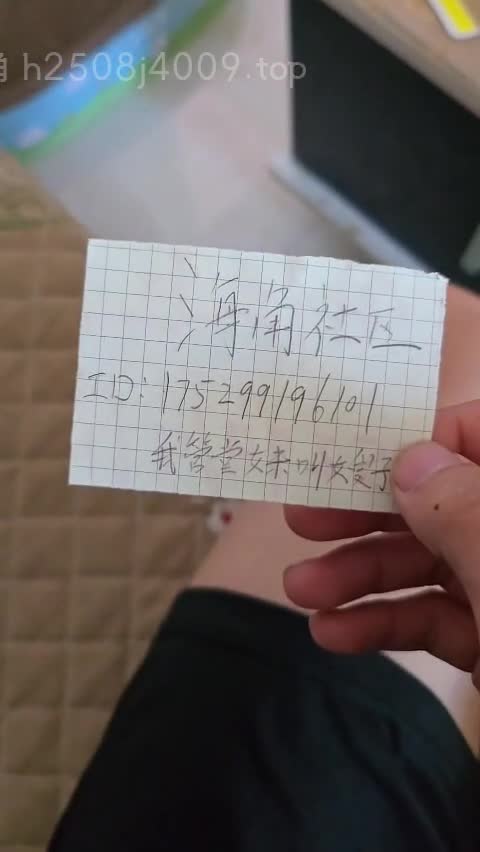 角 h2508j4009.top
海角社区
ID: 175299196101
我管堂妹叫女嫂子